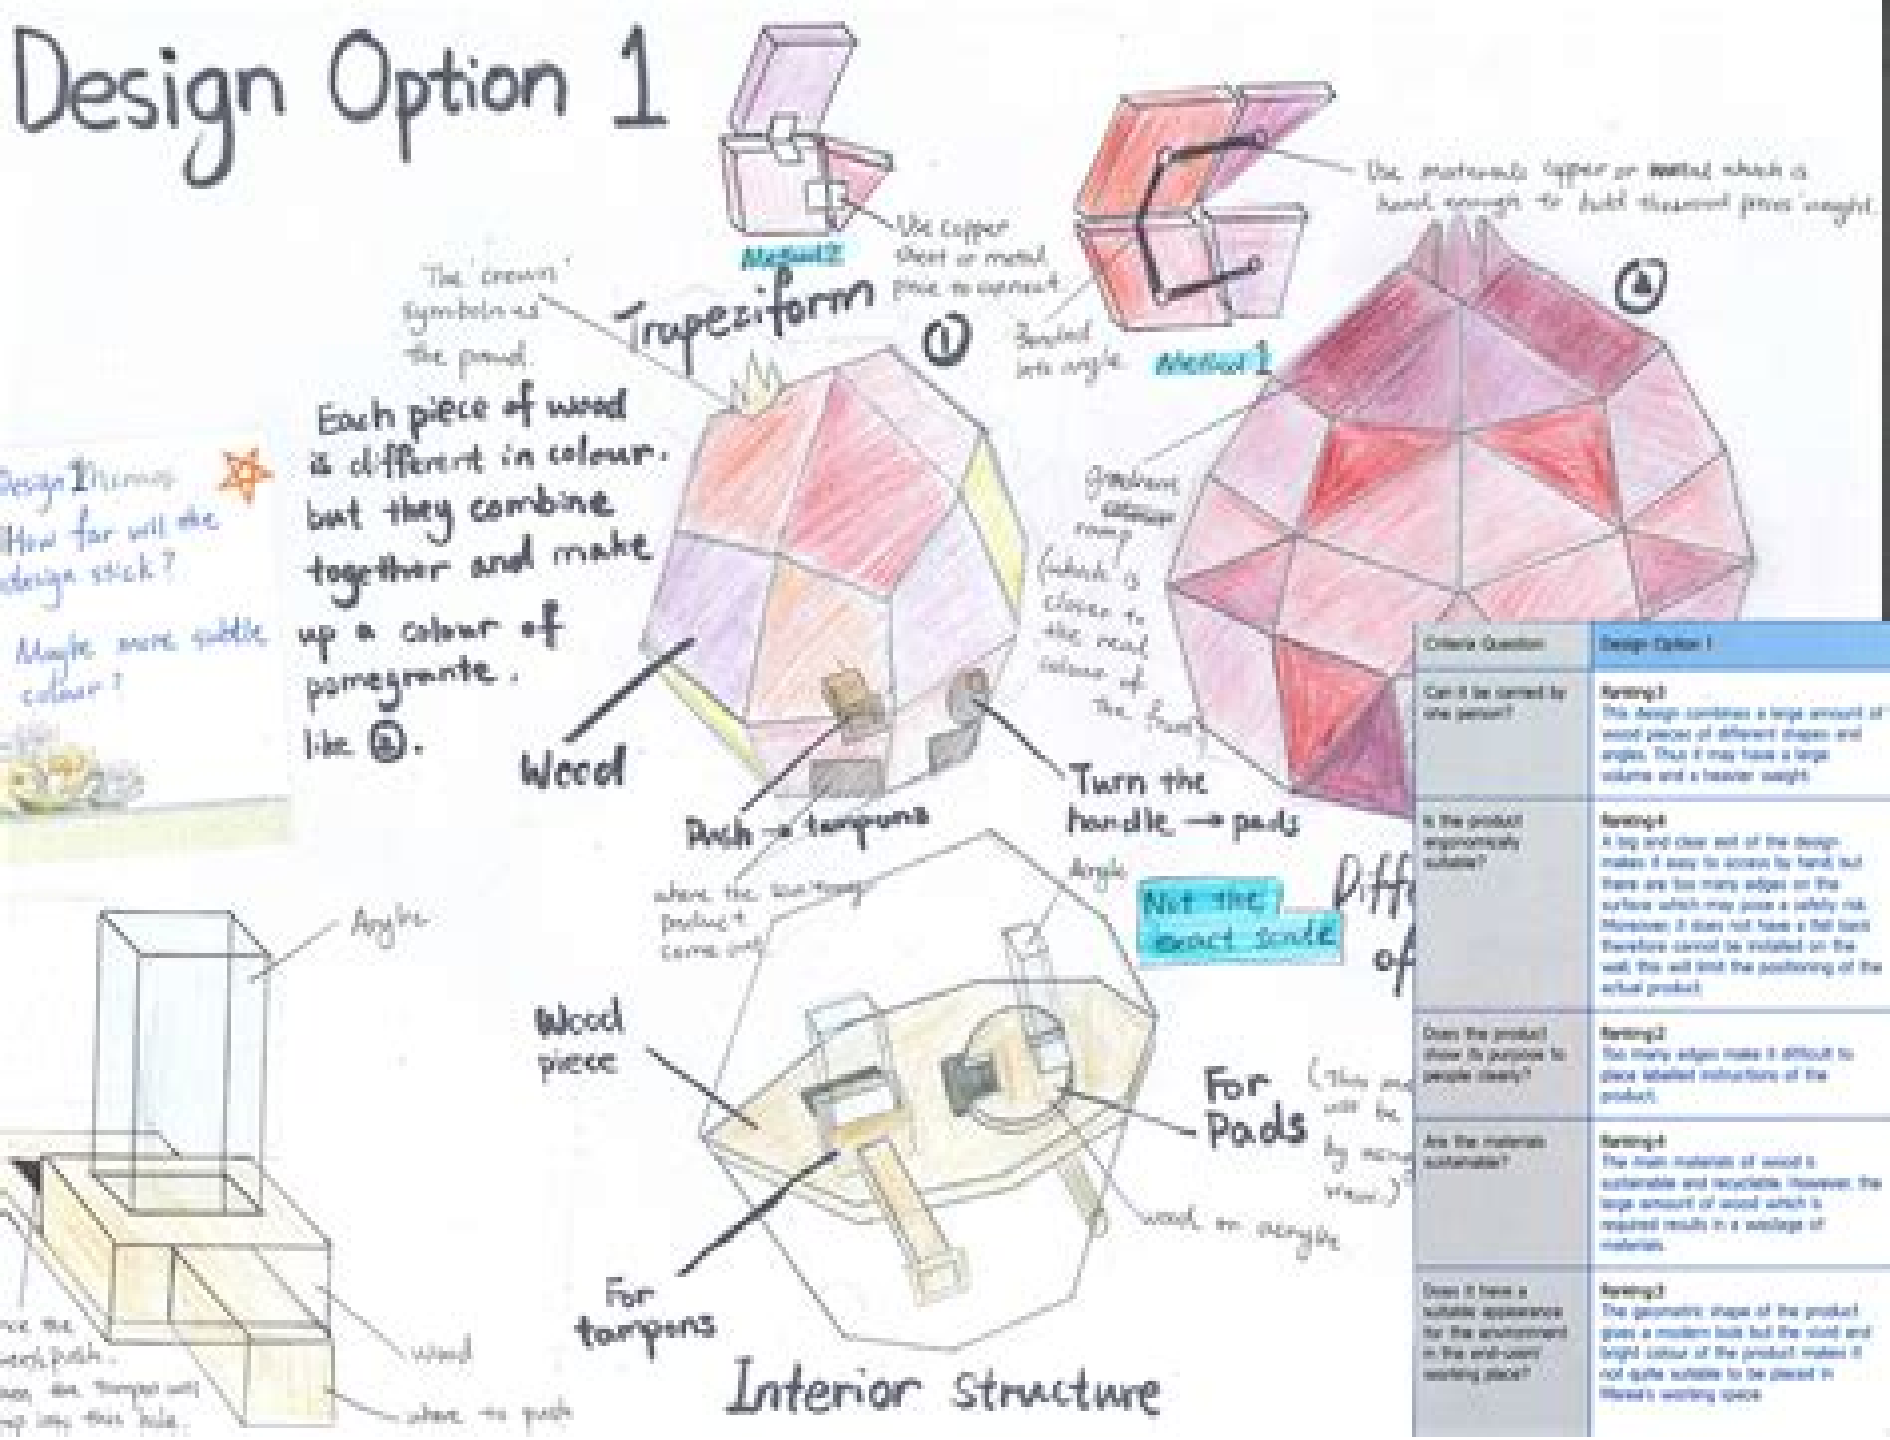 Design Option 1
Method 2
Use copper
sheet or metal
piece to connect.
Use materials copper or metal which is
hard enough to hold
Bended
into angle
Method 1
The 'crown'
the proud.
Trapeziform
①
②
Each piece of wood
is different in colour.
but they combine
together and make
up a colour of
pomegrante.
like ②.
How far will the
design stick?
Maybe more subtle
colour?
ramp
(which is
closer to
the real
colour of
the fruit)
Wood
Push → tampons
Turn the
handle → pads
where the
product
come out
Not the
exact scale
Diffe
of
Wood
piece
For
Pads
will be
by
wood or acrylic
For
tampons
Interior structure
wood
where to push
push.
this hole.
Criteria Question
Design Option 1
Can it be carried by
one person?
Ranking:3
This design combines a large amount of
wood pieces of different shapes and
angles. Thus it may have a large
volume and a heavier weight.
Is the product
ergonomically
suitable?
Ranking:4
A big and clear exit of the design
makes it easy to access by hand, but
there are too many edges on the
surface which may pose a safety risk.
Moreover, it does not have a flat back
therefore cannot be installed on the
wall, this will limit the positioning of the
actual product.
Does the product
show its purpose to
people clearly?
Ranking:2
Too many edges make it difficult to
place labelled instructions of the
product.
Are the materials
sustainable?
Ranking:4
The main materials of wood is
sustainable and recyclable. However, the
large amount of wood which is
required results in a wastage of
materials.
Does it have a
suitable appearance
for the environment
in the end-users'
working place?
Ranking:3
The geometric shape of the product
gives a modern look but the vivid and
bright colour of the product makes it
not quite suitable to be placed in
working space